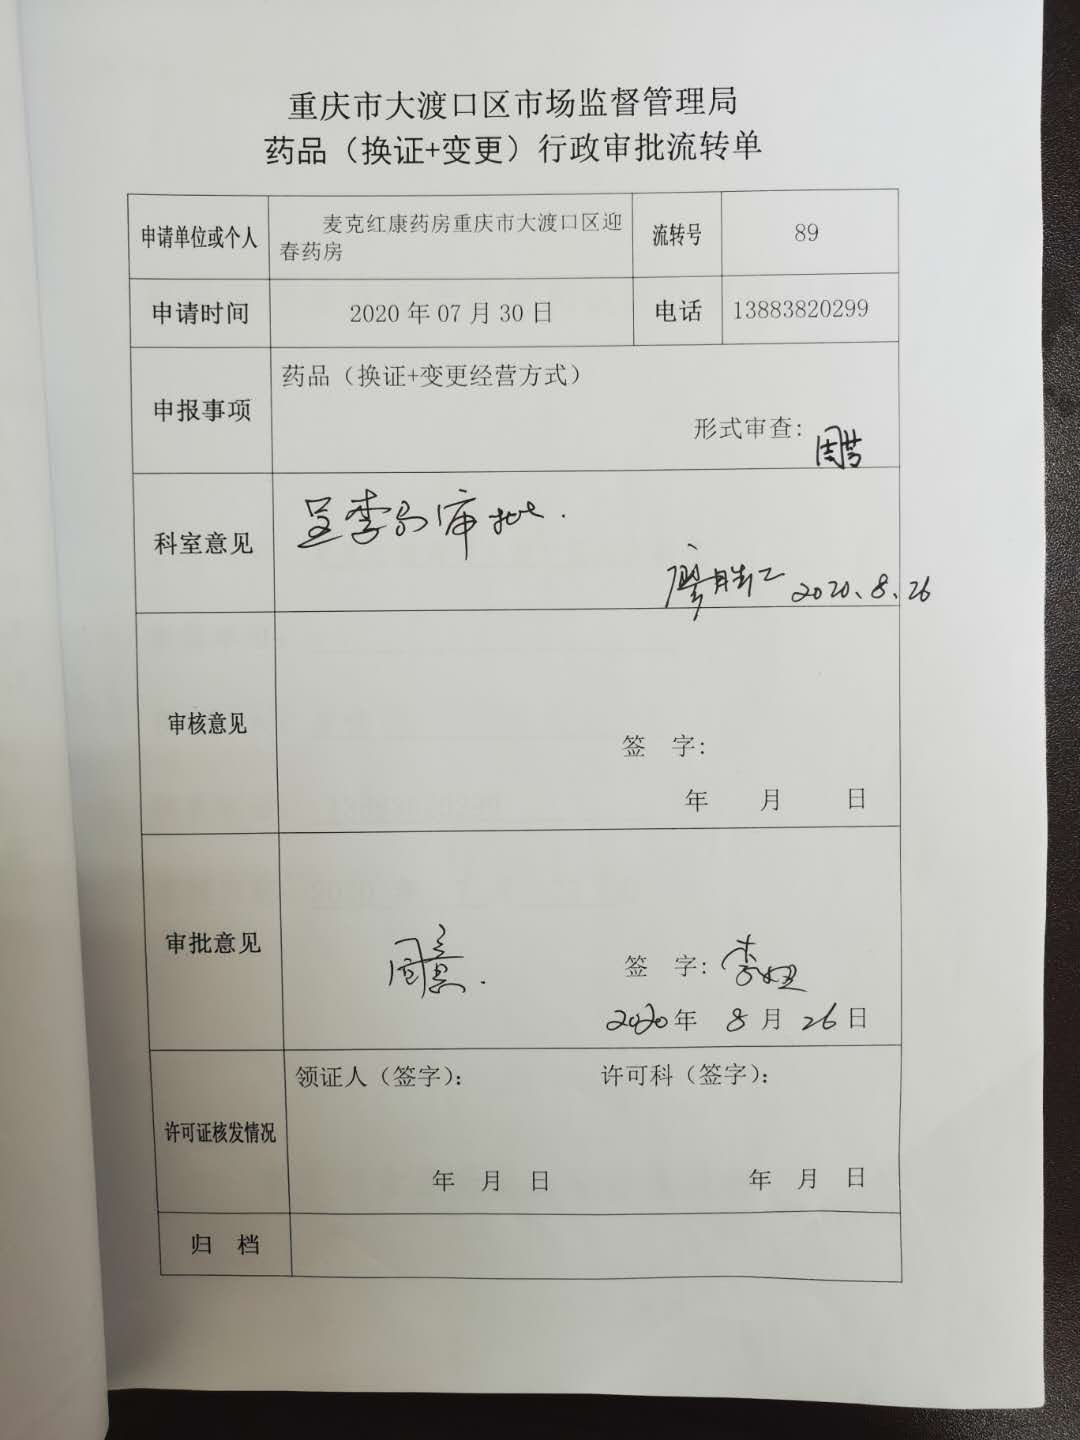 重庆市大渡口区市场监督管理局
药品（换证+变更）行政审批流转单
申请单位或个人 麦克红康药房重庆市大渡口区迎春药房 流转号 89
申请时间 2020 年 07 月 30 日 电话 13883820299
申报事项 药品（换证+变更经营方式）
形式审查：
科室意见 呈李局审批.
2020、8、26
审核意见
签 字：
年 月 日
审批意见 同意.
签 字：
2020年 8 月 26 日
许可证核发情况 领证人（签字）： 许可科（签字）：
年 月 日 年 月 日
归 档